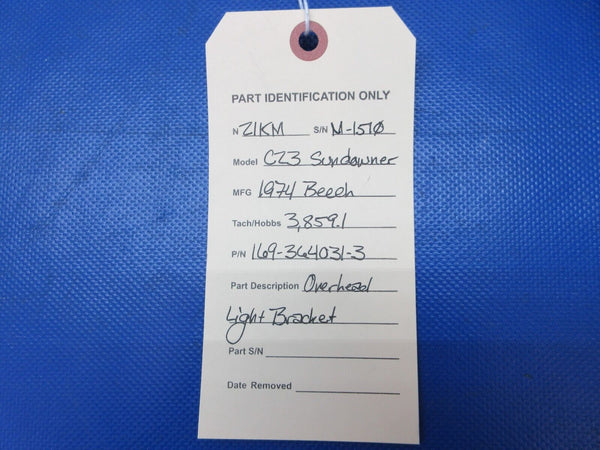 PART IDENTIFICATION ONLY
N 21KM S/N M-1510
Model C23 Sundowner
MFG 1974 Beech
Tach/Hobbs 3,859.1
P/N 169-364031-3
Part Description Overhead
Light Bracket
Part S/N
Date Removed